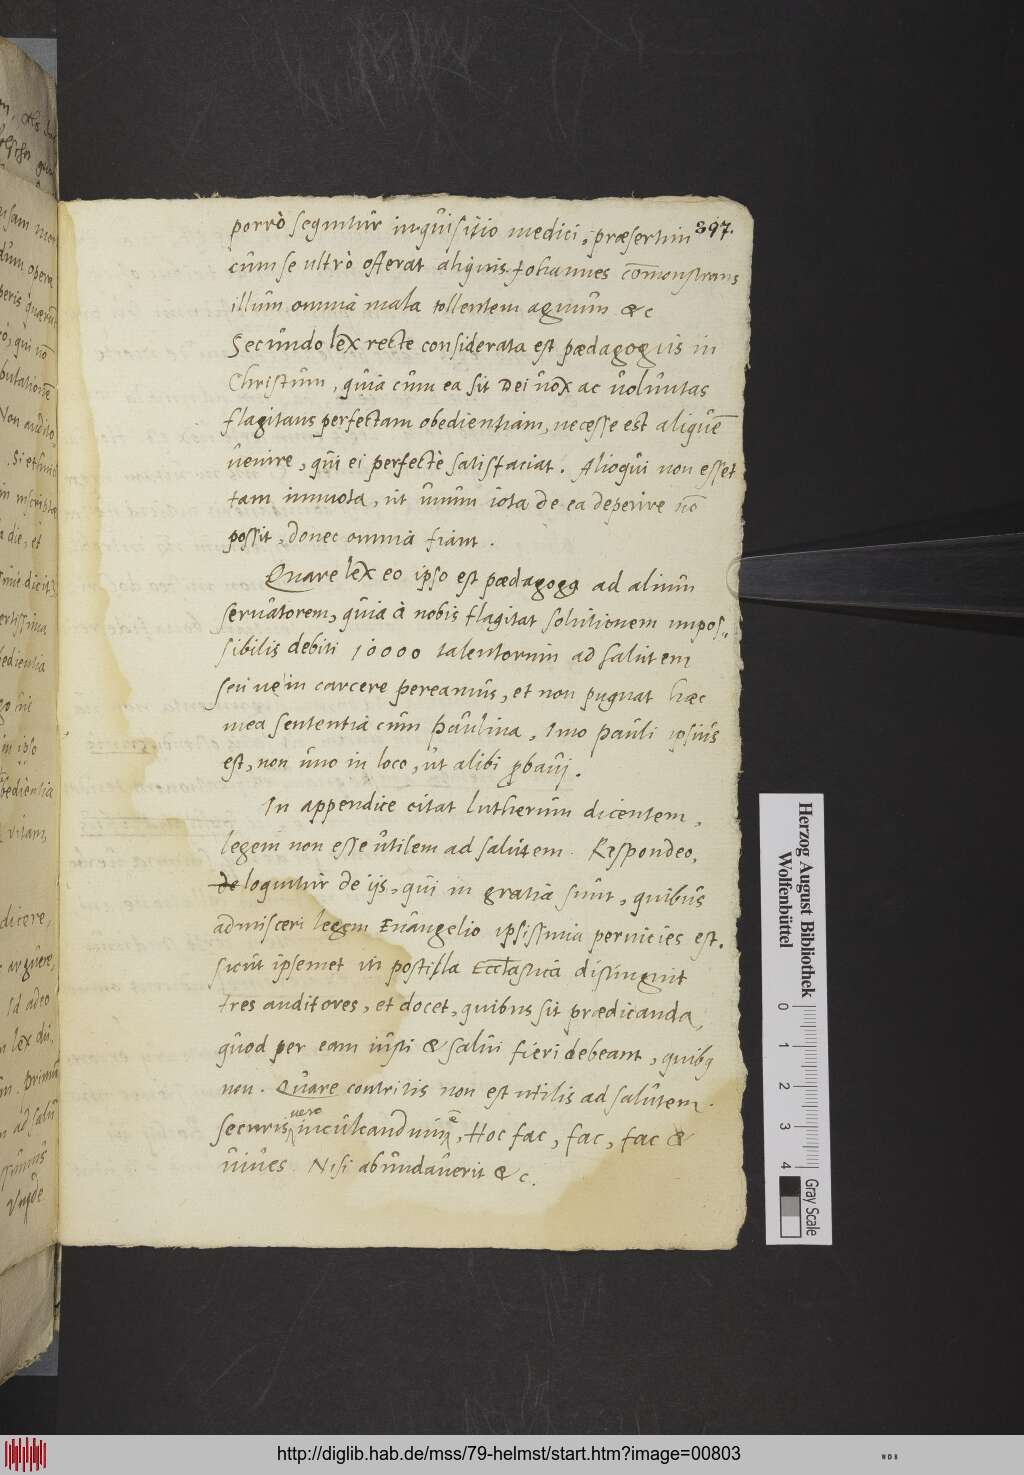 397.
porrò sequitur inquisitio medici, præsertim
cùm se ultrò offerat aliquis Iohannes com̄onstrans
illum omnia mala tollentem agnum &c
Secundo lex recte considerata est pædagogus in
Christum, quia cum ea sit Dei uox ac uoluntas
flagitans perfectam obedientiam, necesse est aliquē
uenire, qui ei perfectè satisfaciat. Alioqui non esset
tam immota, ut unum iota de ea deperire nō
possit, donec omnia fiant.
Quare lex eo ipso est pædagogꝰ ad alium
seruatorem, quia à nobis flagitat solutionem impos„
sibilis debiti 10000 talentorum ad salutem
seu ne in carcere pereamus, et non pugnat hæc
mea sententia cum Paulina, Imo Pauli ipsius
est, non uno in loco, ut alibi ꝓbaui.
In appendice citat Lutherum dicentem,
legem non esse utilem ad salutem. Respondeo,
de loquitur de ijs, qui in gratia sunt, quibus
admisceri legem Euangelio ipsissima pernicies est.
sicut ipsemet in postilla Eccl̄astica distinguit
tres auditores, et docet, quibus sit prædicanda,
quod per eam iusti & salui fieri debeant, quibꝰ
non. Quare contritis non est utilis ad salutem.
securis uero inculcandum ē, Hoc fac, fac, fac &
uiues. Nisi abundauerit &c.
Herzog August Bibliothek
Wolfenbüttel
0 1 2 3 4
Gray Scale
http://diglib.hab.de/mss/79-helmst/start.htm?image=00803